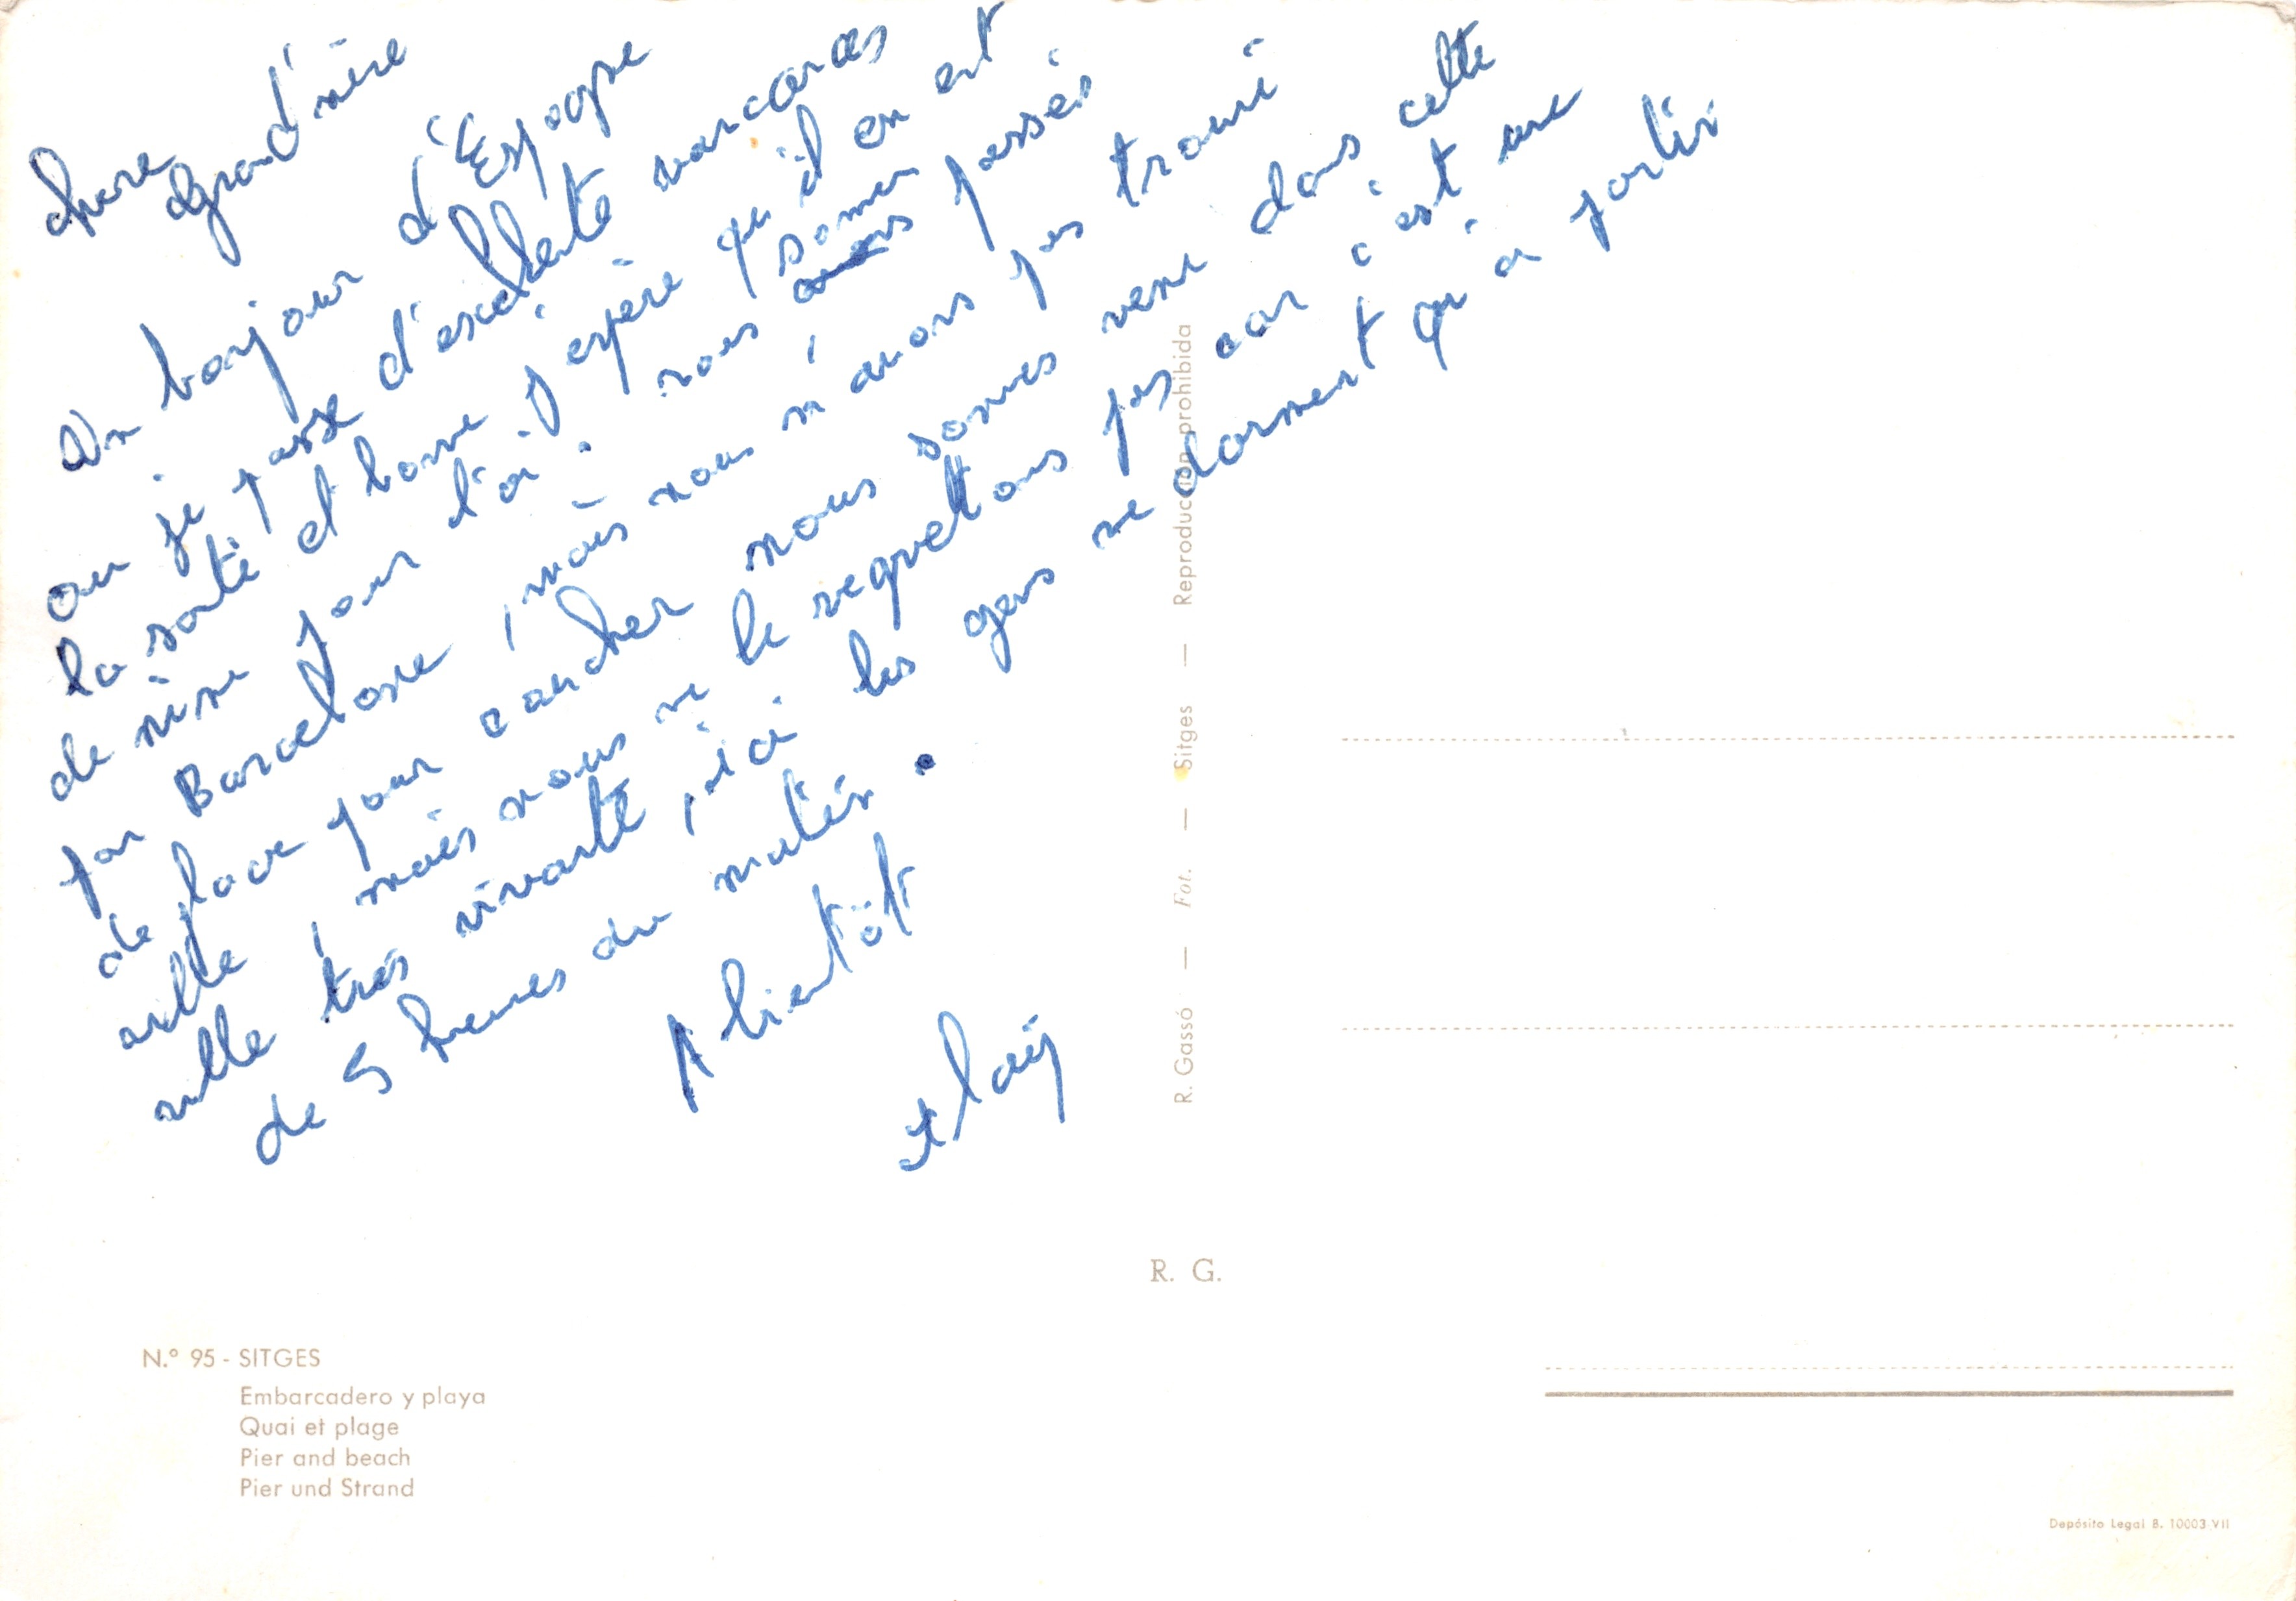 chere
grand'mère
Un bonjour d'Espagne
ou je passe d'excellente vacances
la santé et bonne j'espère qu'il en est
de même pour toi. nous sommes passés
par Barcelone, mais nous n'avons pas trouvé
de place pour coucher nous sommes venu dans cette
ville, mais nous ne le regrettons pas car c'est une
ville tres vivante, ici les gens ne dorment qu'à partir
de 5 heures du matin.
A bientôt
Alain
R. Gassó — Fot. — Sitges — Reproducción prohibida
R. G.
N.º 95 - SITGES
Embarcadero y playa
Quai et plage
Pier and beach
Pier und Strand
Depósito Legal B. 10003 VII